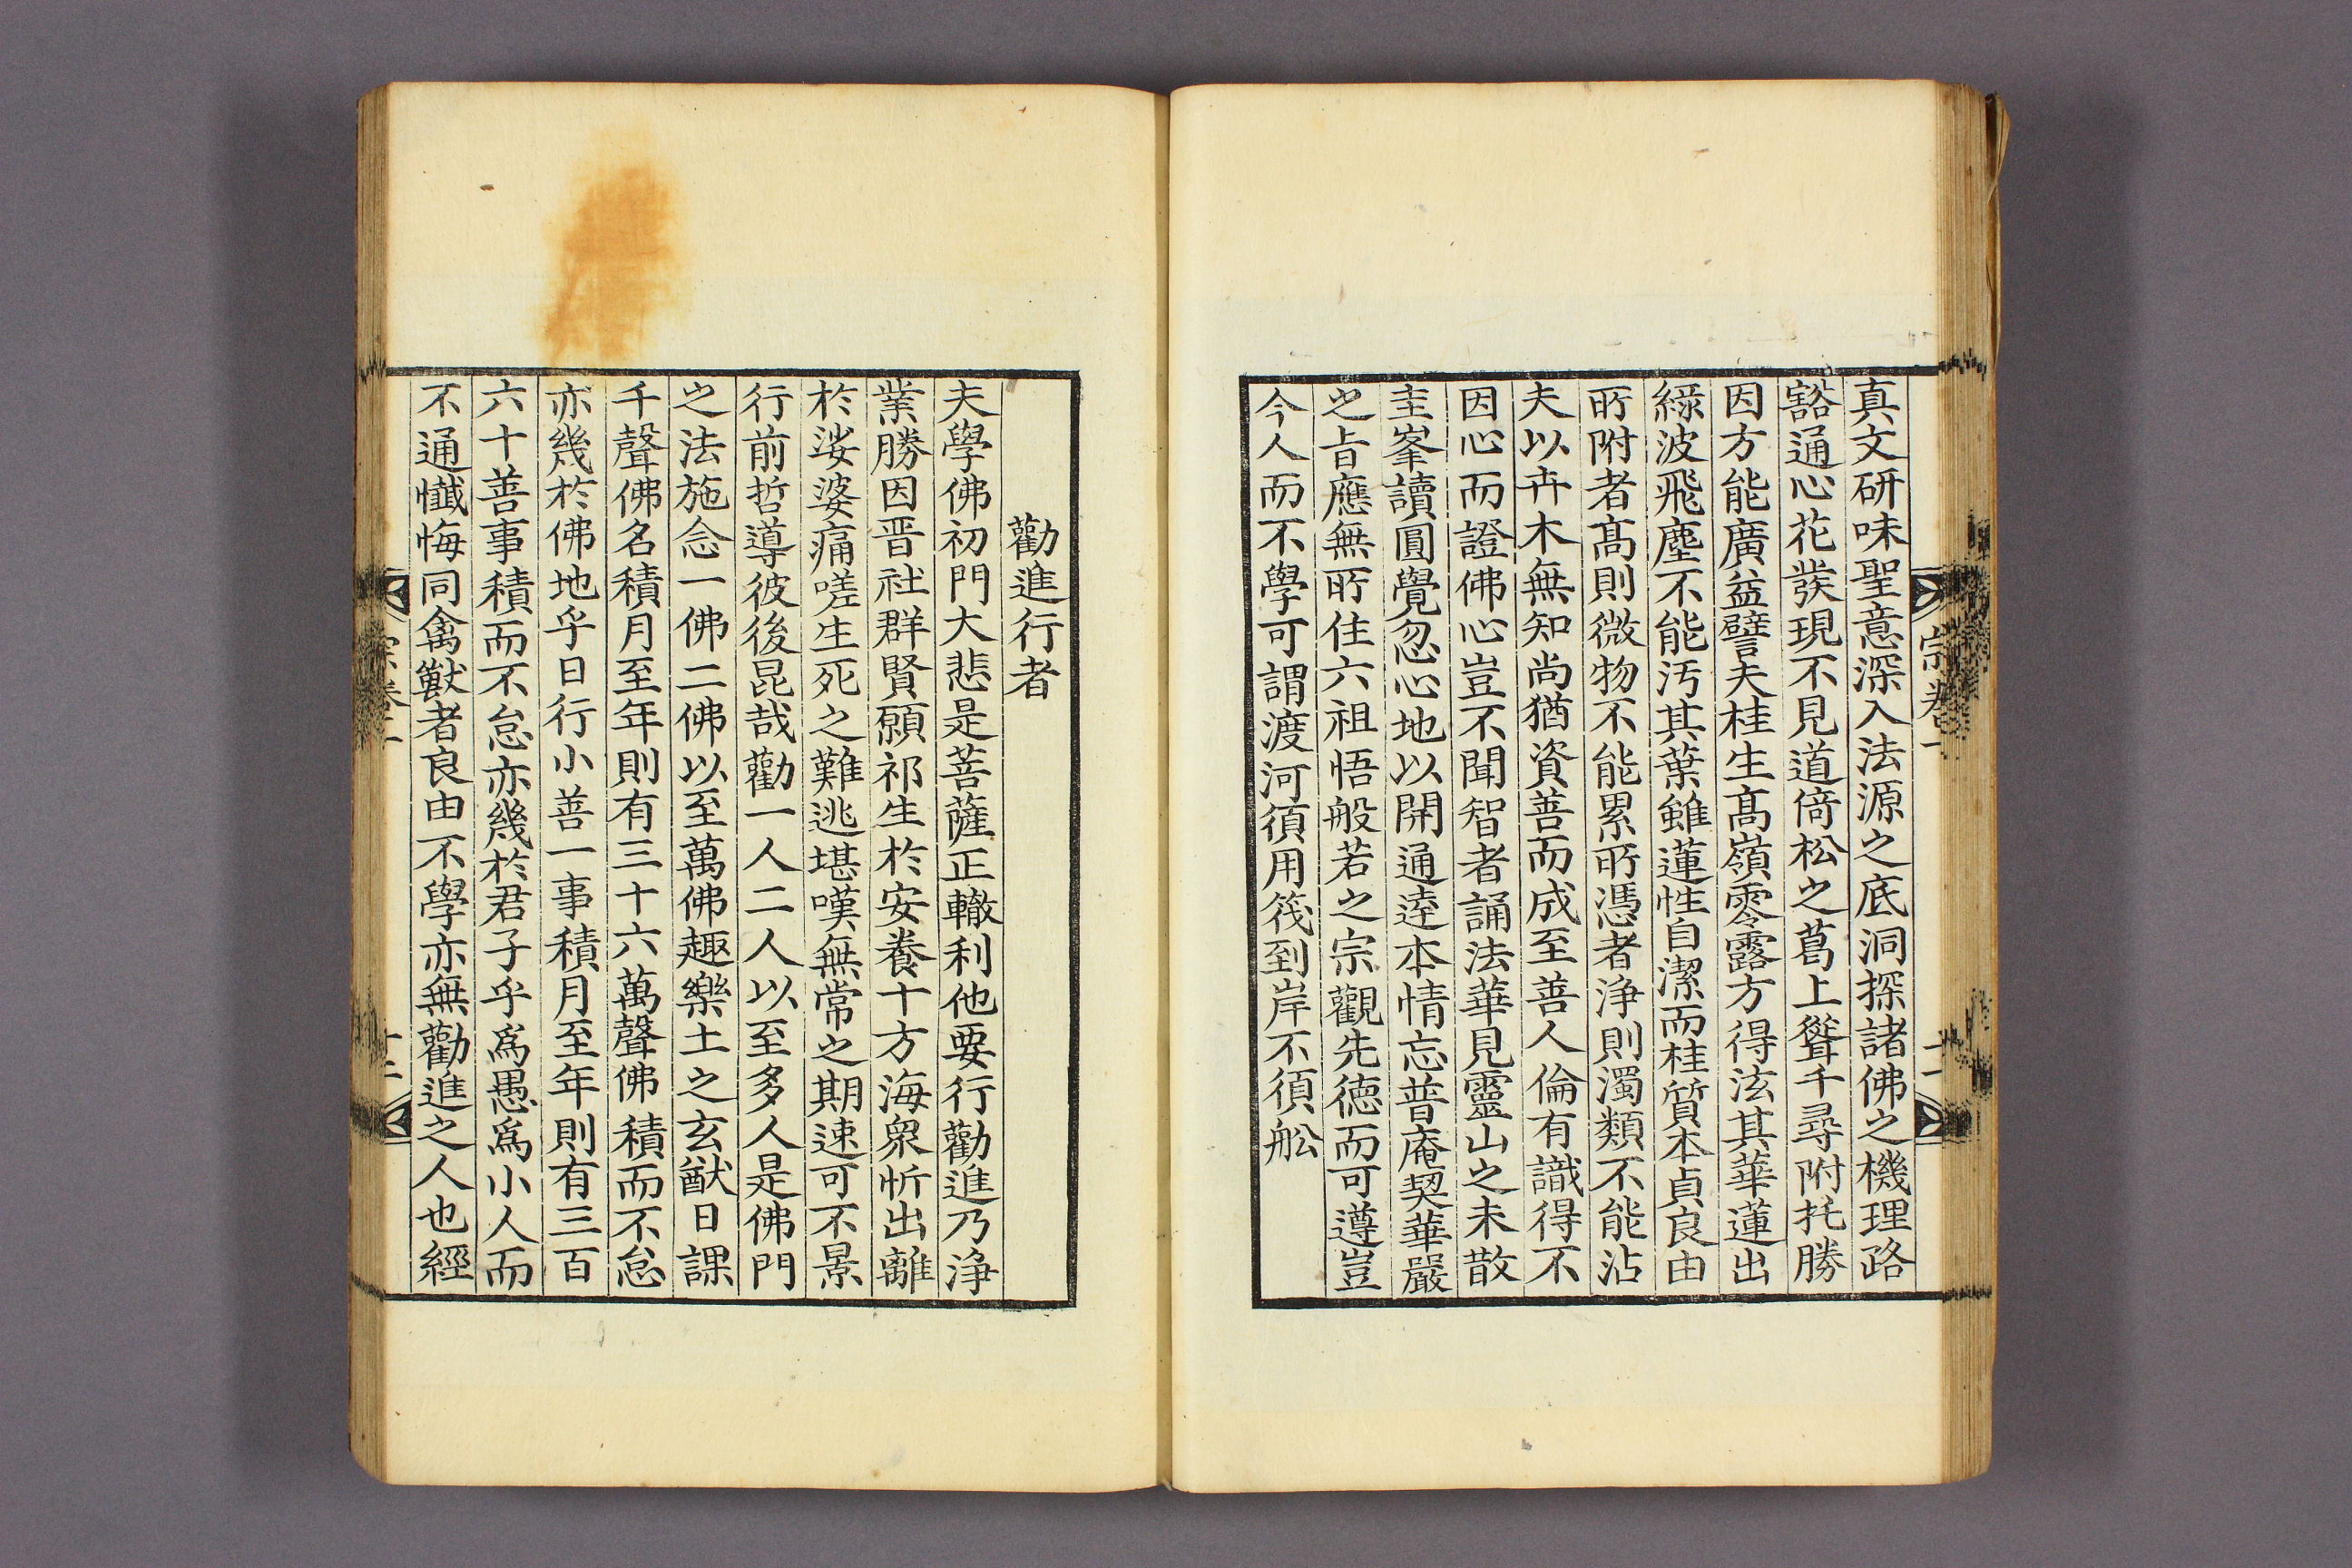 真文研味聖意深入法源之底洞探諸佛之機理路
豁通心花發現不見道倚松之葛上聳千尋附托勝
因方能廣益譬夫桂生高嶺零露方得泫其華蓮出
綠波飛塵不能汚其葉雖蓮性自潔而桂質本貞良由
所附者髙則微物不能累所憑者浄則濁類不能沾
夫以卉木無知尚猶資善而成至善人倫有識得不
因心而證佛心豈不聞智者誦法華見靈山之未散
圭峯讀圓覺忽心地以開通逵本情忘普庵契華嚴
之㫖應無所住六祖悟般若之宗觀先徳而可遵豈
今人而不學可謂渡河須用筏到岸不須舩
勸進行者
夫學佛初門大悲是菩薩正轍利他要行勸進乃浄
業勝因晋社群賢願祁生於安養十方海衆忻出離
於娑婆痛嗟生死之難逃堪嘆無常之期速可不景
行前哲導彼後昆哉勸一人二人以至多人是佛門
之法施念一佛二佛以至萬佛趣樂土之玄猷日課
千聲佛名積月至年則有三十六萬聲佛積而不怠
亦幾於佛地乎日行小善一事積月至年則有三百
六十善事積而不怠亦幾於君子乎爲愚爲小人而
不通懺悔同禽獸者良由不學亦無勸進之人也經